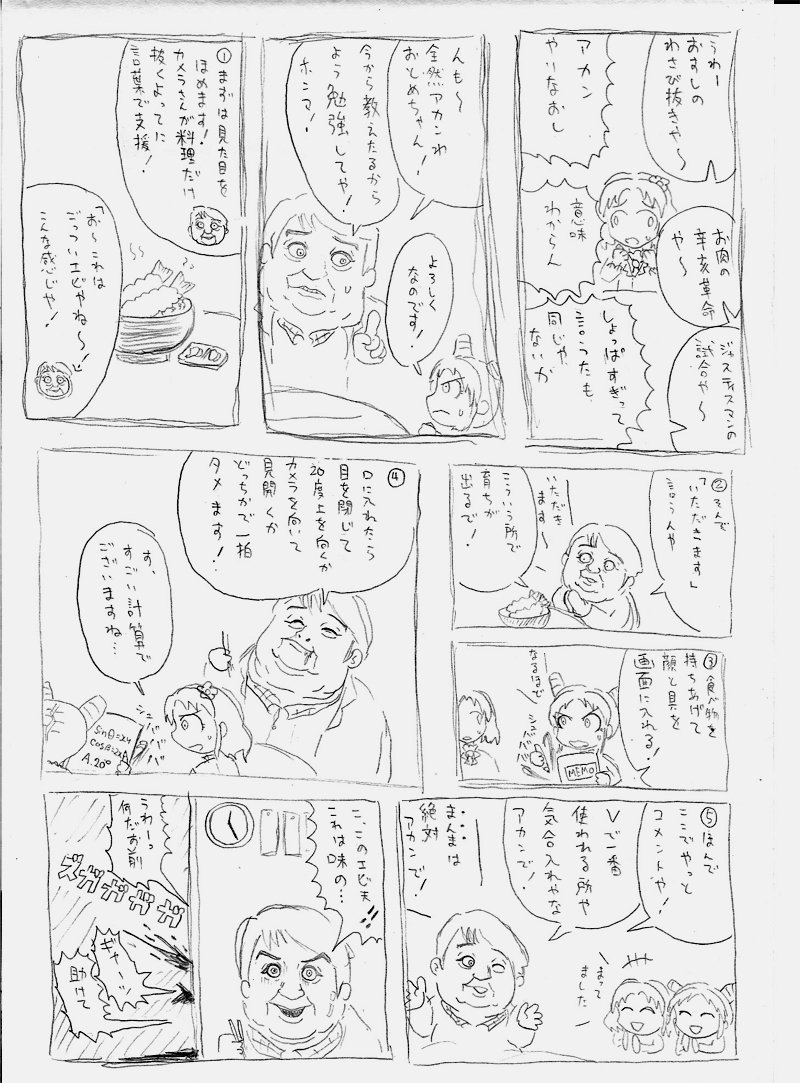 うわー
おすしの
わさび抜きや〜
お肉の
辛亥革命
や〜
ジャスティスマンの
試合や〜
アカン
やりなおし
意味
わからん
しょっぱすぎって
言うたも
同じや
ないか
んも〜
全然アカンわ
おとめちゃん!
今から教えたるから
よう勉強してや!
ホンマ!
よろしく
なのです!
①まずは見た目を
ほめます!
カメラさんが料理だけ
抜くよってに
言葉で支援!
「お〜これは
ごっついエビやね〜!」
こんな感じや!
②そんで
「いただきます」
言うんや
いただき
ます〜
こういう所で
育ちが
出るで!
③食べ物を
持ちあげて
顔と具を
画面に入れる!
なるほど
シュババババ
MEMO
④
口に入れたら
目を閉じて
20度上を向くか
カメラを向いて
見開くか
どっちかで一拍
タメます!
す、
すごい計算で
ございますね…
シュババババ
sinθ=24
A.20°
⑤ほんで
ここでやっと
コメントや!
Vで一番
使われる所や
気合入れやな
アカンで!
まんまは
絶対
アカンで!
まって
ました
こ、このエビ天
これは味の…
うわーっ
何だお前
ズガガガガガ
ギャーッ
助けて